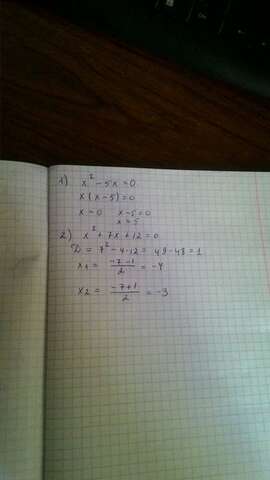 1) x² - 5x = 0
x(x-5) = 0
x = 0 x-5=0
x=5
2) x² + 7x + 12 = 0
D = 7² - 4·12 = 49 - 48 = 1
x₁ = \frac{-7-1}{2} = -4
x₂ = \frac{-7+1}{2} = -3